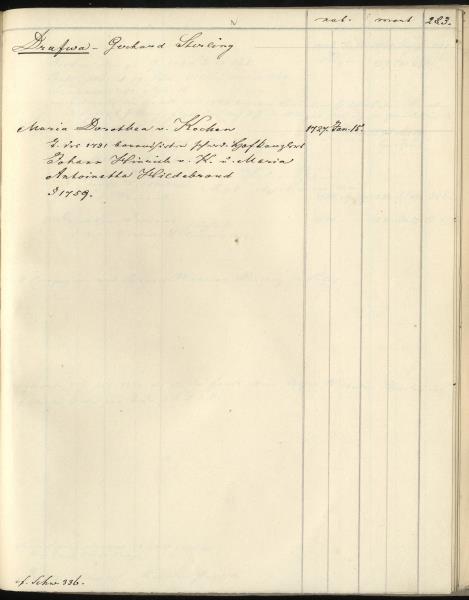 nat. mort. 283.
Drafwa - Gerhard Sterling
Maria Dorothea v. Kochen 1727. Jan. 15.
T. des 1731 baronisirten schwed. Hofkanzlers
Johann Hinrich v. K. u. Maria
Antoinetta Hildebrand
1759.
cf. Schw. 336.